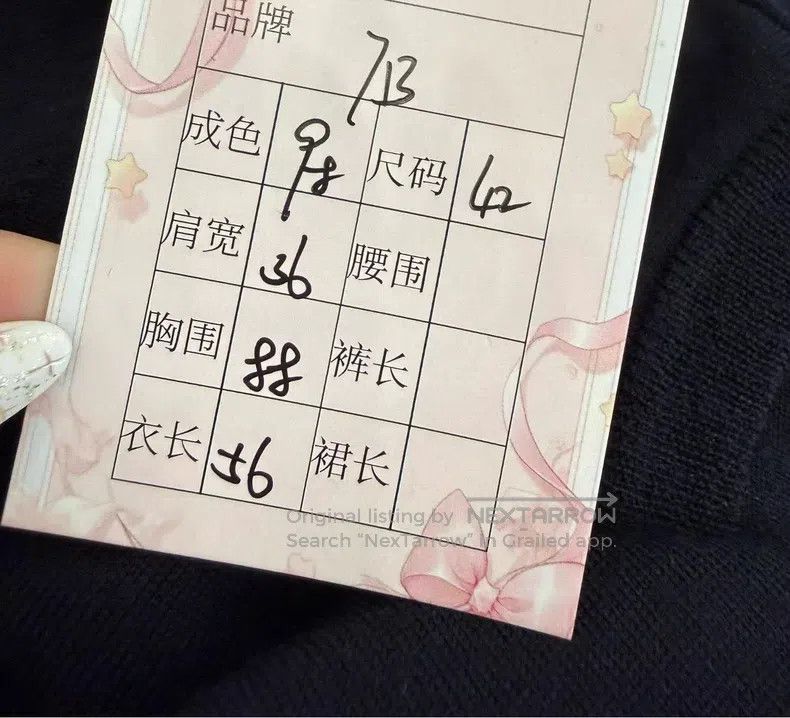 品牌 713
成色 98 尺码 42
肩宽 36 腰围
胸围 88 裤长
衣长 56 裙长
Original listing by NEXTARROW
Search “NexTarrow” in Grailed app.